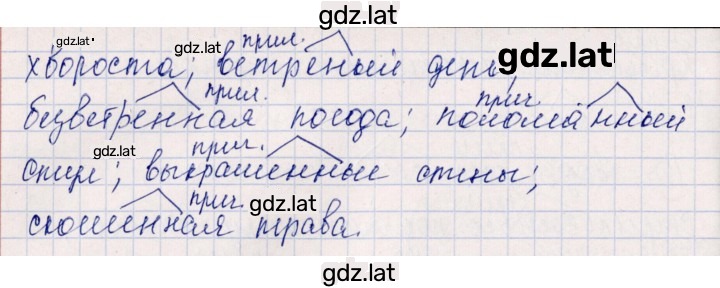 gdz.lat
gdz.lat gdz.lat прил.
хвороста; ветреный день; gdz.lat
прил. прич.
безветренная погода; поломанный
gdz.lat прич.
стул; выкрашенные стены;
прич. gdz.lat
скошенная трава.
gdz.lat
gdz.lat